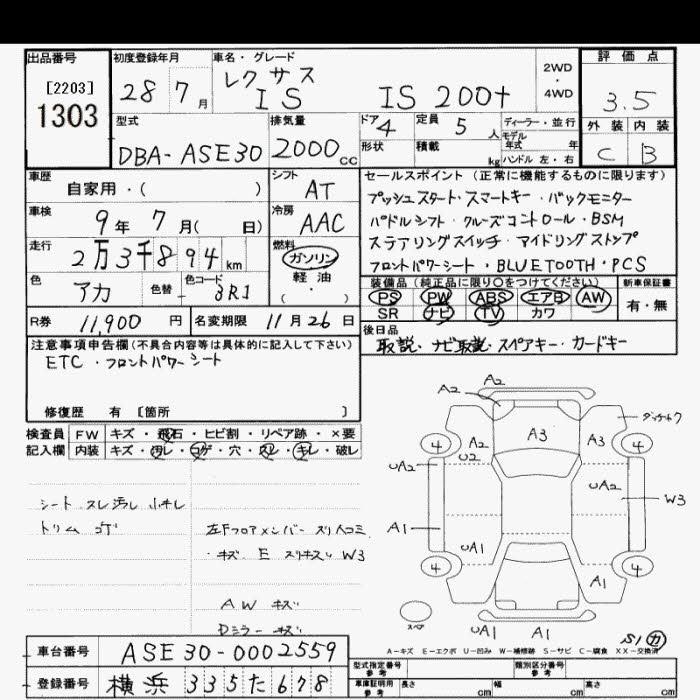 出品番号
[2203]
1303
初度登録年月
28 7 月
車名・グレード
レクサス
IS IS 200t
2WD
・
4WD
評価点
3.5
外装 内装
C B
型式
DBA-ASE30
排気量
2000 cc
ドア
4
定員
5 人
ディーラー・並行
モデル
年式 年
形状
積載
kg
ハンドル 左・右
車歴
自家用・( )
シフト
AT
車検
9 年 7 月( 日)
冷房
AAC
走行
2万3千894 km
燃料
ガソリン
軽油
( ・ )
色
アカ
色替
-
色コード
3R1
R券 11,900 円
名変期限 11 月 26 日
セールスポイント (正常に機能するものに限ります)
プッシュスタート・スマートキー・バックモニター
パドルシフト・クルーズコントロール・BSM
ステアリングスイッチ・アイドリングストップ
フロントパワーシート・BLUETOOTH・PCS
装備品 (純正品に限り○をつけてください)
PS PW ABS エアB AW
SR ナビ TV カワ
新車保証書
有・無
後日品
取説・ナビ取説・スペアキー・カードキー
注意事項申告欄(不具合内容等は具体的に記入して下さい)
ETC・フロントパワーシート
修復歴 有 [箇所 ]
検査員 FW キズ・飛石・ヒビ割・リペア跡・×要
記入欄 内装 キズ・汚レ・コゲ・穴・スレ・キレ・破レ
シート スレ 汚レ 小キレ
トリム コゲ
左Fフロアメンバー スリ凹コミ
・キズ E スリキズ W3
AW キズ
Dミラー キズ
A2 A2
A2 A3 A3
4 4
U2
UA2 UA2
W3
A1
UA1
4 4
A1
スペア
UA1 A1
A-キズ E-エクボ U-凹み W-補修跡 S-サビ C-腐食 XX-交換済
車台番号 ASE30-0002559
登録番号 横浜 335 た 678
型式指定番号
参考
類別区分番号
参考
車庫証明用
参考
長さ cm 幅 cm 高さ cm